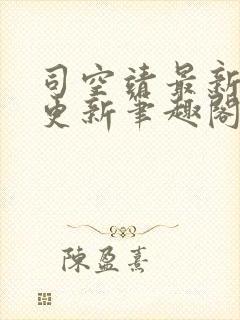 司空靖最新
更新笔趣阁
陈盈熹